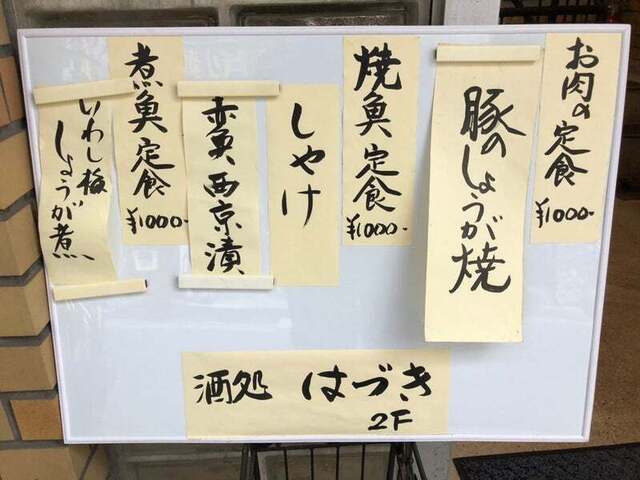 お肉の定食
¥1000-
豚のしょうが焼
焼魚定食
¥1000-
しゃけ
赤魚西京漬
煮魚定食
¥1000-
いわし梅
しょうが煮
酒処 はづき
2F